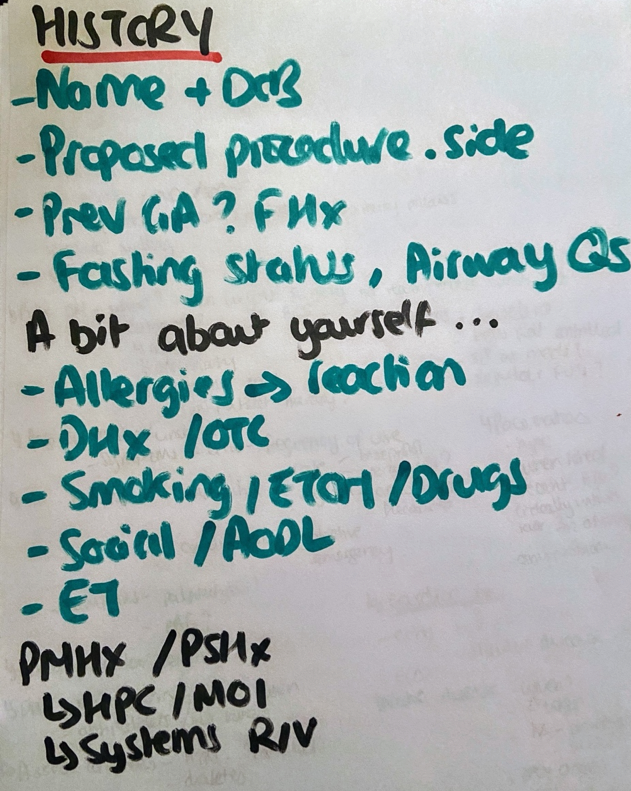 HISTORY
- Name + DOB
- Proposed procedure . side
- Prev GA ? FHx
- Fasting status, Airway Qs
A bit about yourself ...
- Allergies → reaction
- DHx / OTC
- Smoking / ETOH / Drugs
- Social / AODL
- ET
PMHx / PSHx
↳ HPC / MOI
↳ Systems R/V